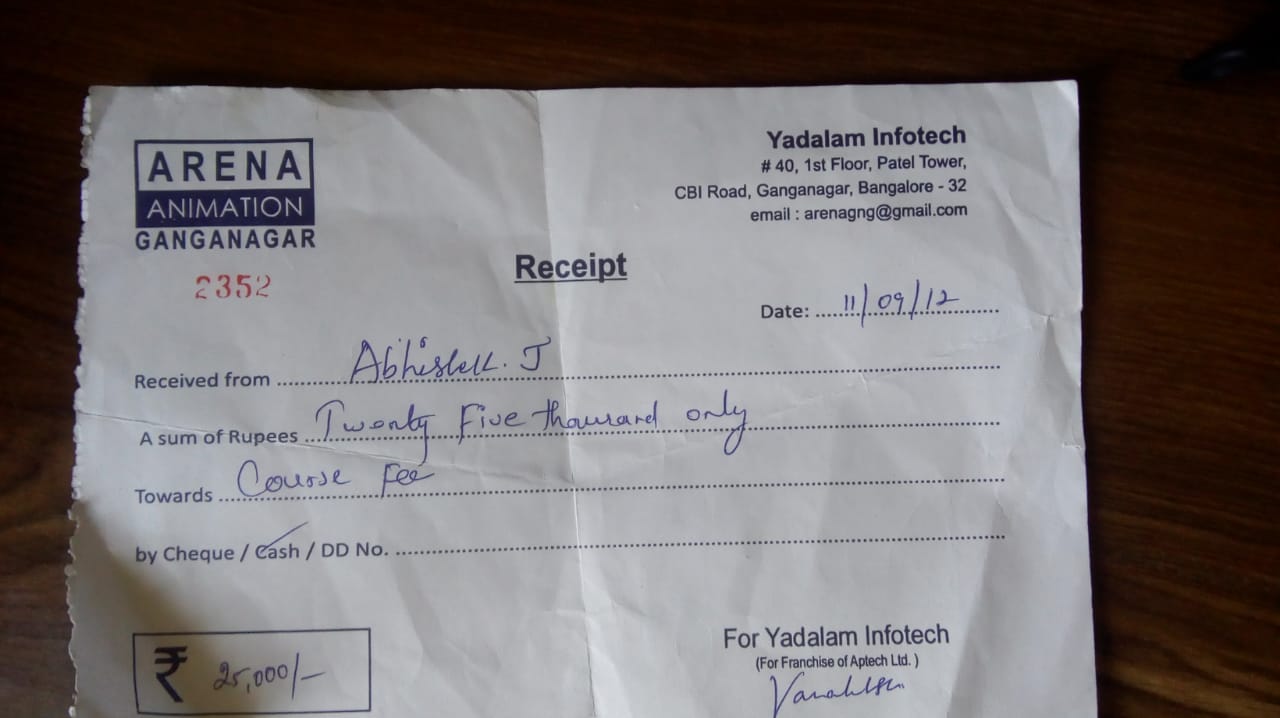 ARENA
ANIMATION
GANGANAGAR
2352
Yadalam Infotech
# 40, 1st Floor, Patel Tower,
CBI Road, Ganganagar, Bangalore - 32
email : arenagng@gmail.com
Receipt
Date: 11/09/12
Received from Abhishek. J
A sum of Rupees Twenty Five thousand only
Towards Course Fee
by Cheque / Cash / DD No.
₹ 25,000/-
For Yadalam Infotech
(For Franchise of Aptech Ltd. )